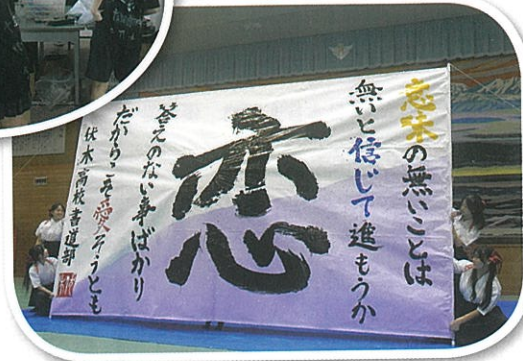 意味の無いことは
無いと信じて進もうか
恋
答えのない事ばかり
だからこそ愛そうとも
伏木高校書道部